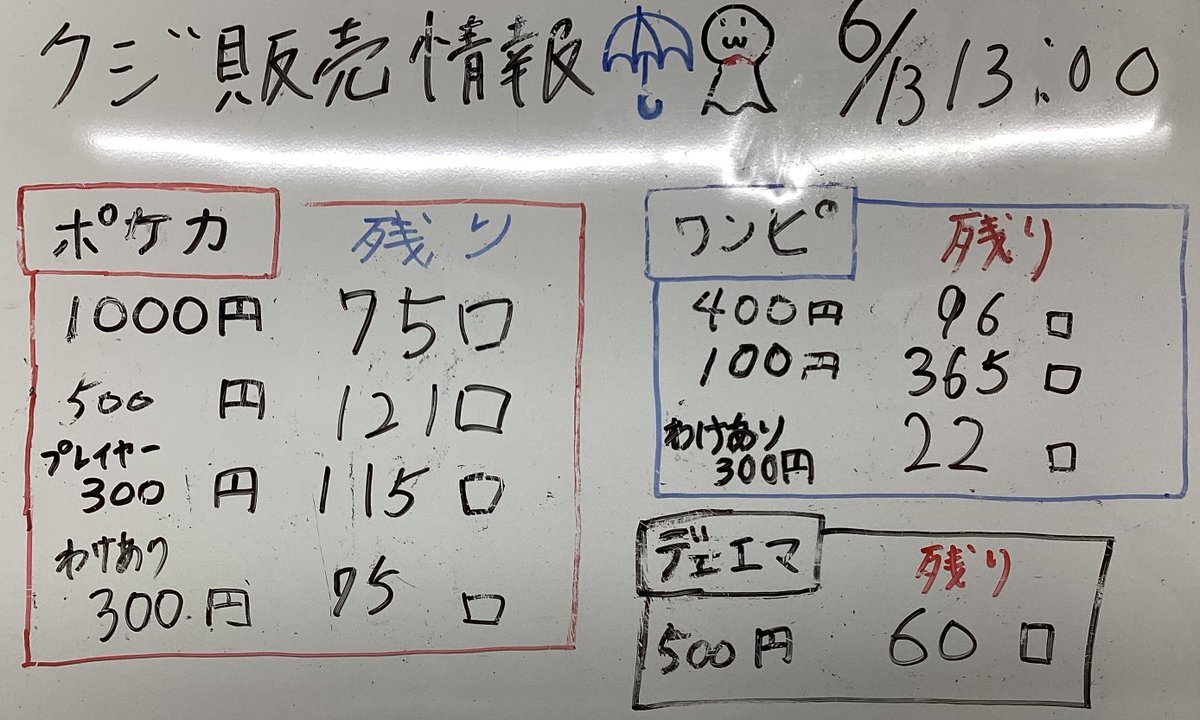 クジ販売情報 6/13 13:00
ポケカ 残り
1000円 75口
500円 121口
プレイヤー
300円 115口
わけあり
300円 75口
ワンピ 残り
400円 96口
100円 365口
わけあり
300円 22口
デュエマ 残り
500円 60口